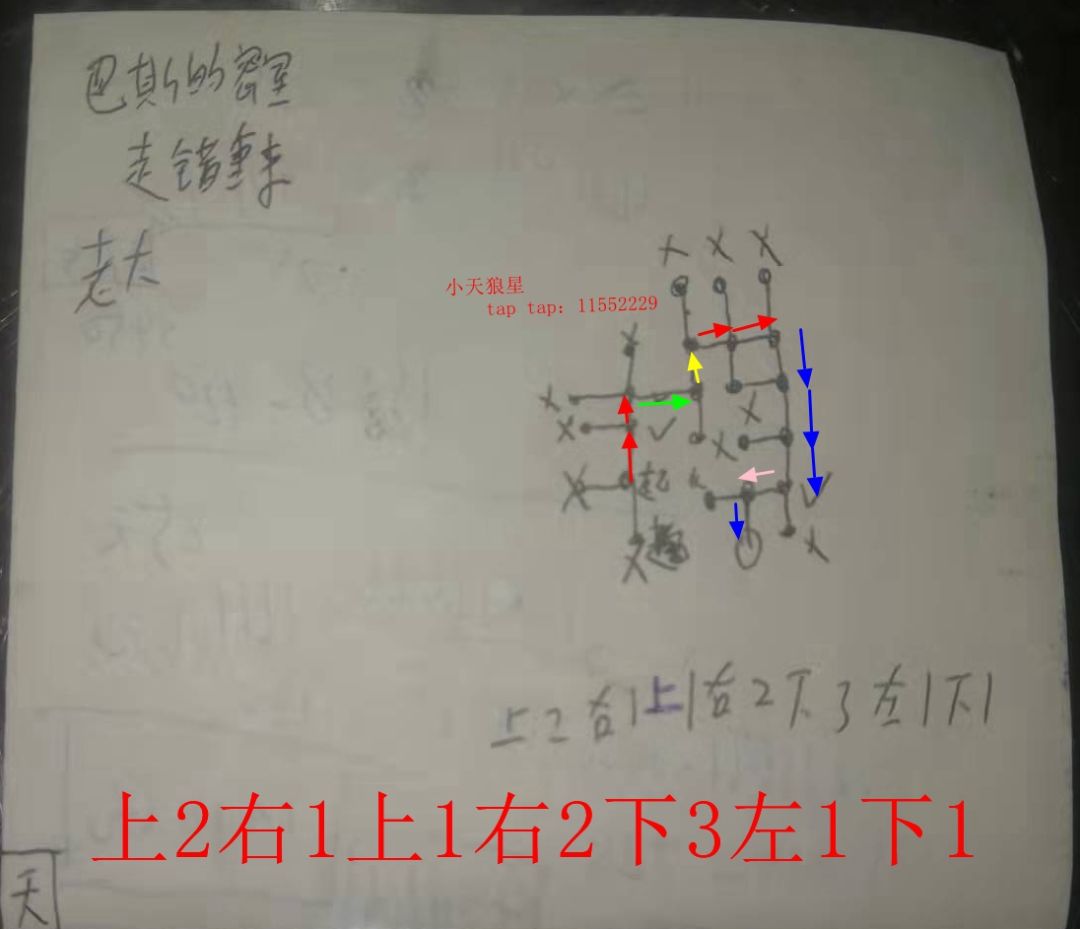 巴斯的密室
走错重来
老大
小天狼星
tap tap: 11552229
X X X
X
X
X √
X 起
X
X
X
√
X
X
上2右1上1右2下3左1下1
上2右1上1右2下3左1下1
天